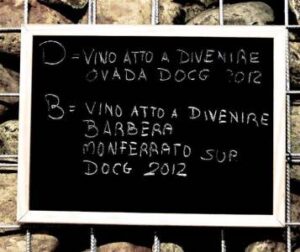 D = VINO ATTO A DIVENIRE
OVADA DOCG 2012
B = VINO ATTO A DIVENIRE
BARBERA
MONFERRATO SUP
DOCG 2012